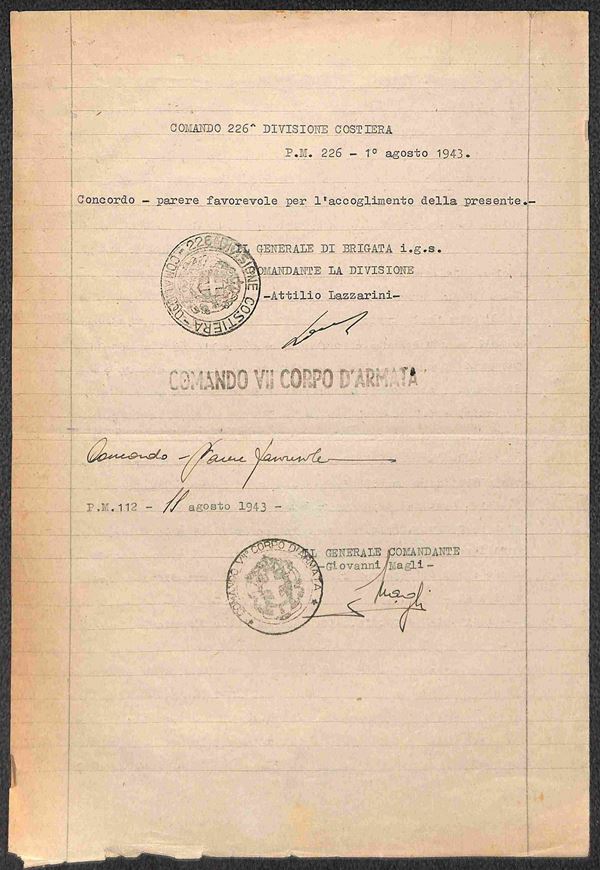 COMANDO 226^ DIVISIONE COSTIERA
P.M. 226 - 1º agosto 1943.
Concordo - parere favorevole per l'accoglimento della presente.-
IL GENERALE DI BRIGATA i.g.s.
COMANDANTE LA DIVISIONE
-Attilio Lazzarini-
COMANDO - 226 DIVISIONE COSTIERA -
COMANDO VII CORPO D'ARMATA
Concordo - Parere favorevole
P.M.112 - 18 agosto 1943 -
IL GENERALE COMANDANTE
-Giovanni Magli-
COMANDO VII CORPO D'ARMATA
Magli